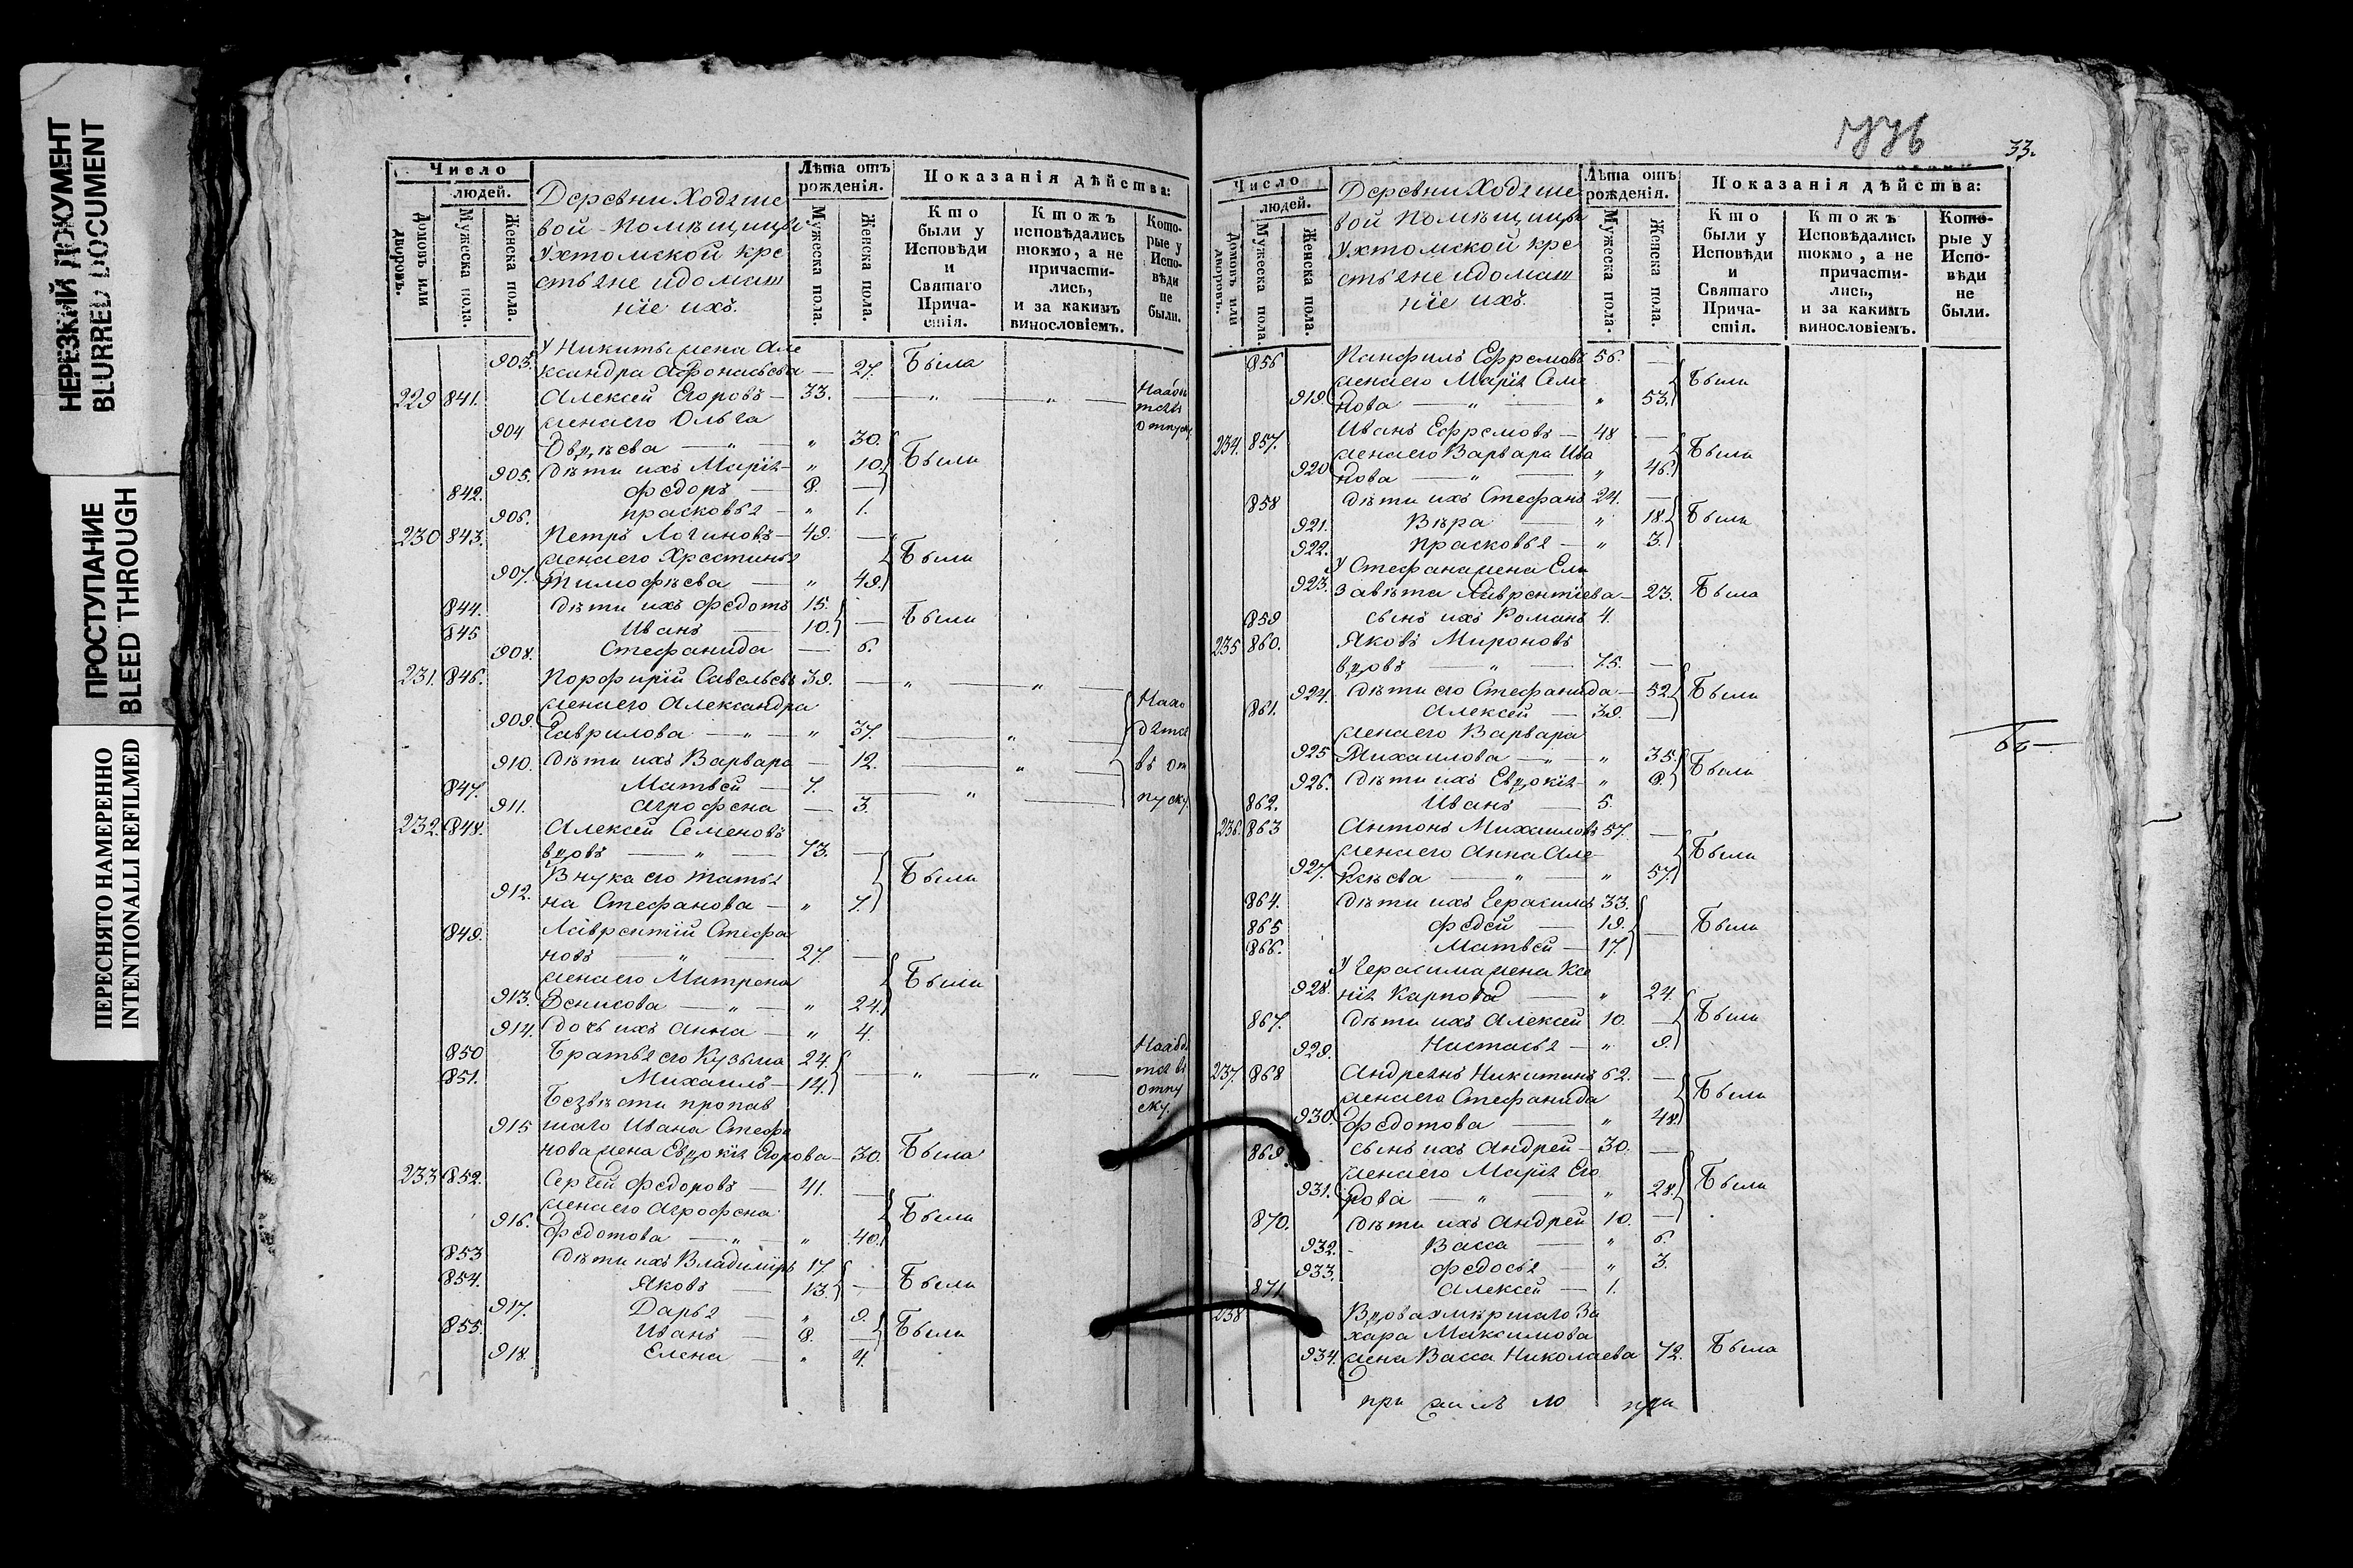 НЕРЕЗКИЙ ДОКУМЕНТ
BLURRED DOCUMENT
ПРОСТУПАНИЕ
BLEED THROUGH
ПЕРЕСНЯТО НАМЕРЕННО
INTENTIONALLI REFILMED
Число
людей.
Домовъ или дворовъ.
Мужеска пола.
Женска пола.
Деревни Ходяше
вой помѣщицы
Ухтомской кре
стьяне и домаш
нїе ихъ.
Лѣта отъ рожденія.
Мужеска пола.
Женска пола.
Показанія дѣйства:
Кто были у Исповѣди и Святаго Причастія.
Ктожъ исповѣдались токмо, а не причастились, и за какимъ винословіемъ.
Которые у Исповѣди не были.
У Никиты жена Але
903. ксандра Афонасьева — 27. Была
229 841. Алексей Егоровъ — 33. — " — " —
жена его Ольга
904 Авдѣева — " — " 30. Были
905. дѣти ихъ Марїя — " 10.
842. Федоръ — 8. —
906. Прасковья — " 1.
230 843. Петръ Логиновъ — 49. —
жена его Хрестинья Были
907. Тимофѣева — " 49.
844. дѣти ихъ Федотъ 15.
845 Иванъ — 10. — Были
908. Стефанида — 6.
231. 846. Порфирїй Савельевъ 39. — " — " —
жена его Александра
909. Гаврилова — " — " 37. — " —
910. дѣти ихъ Варвара — 12. — " —
847. Матвей — 7. — " —
911. Агрофена — 3.
232. 848. Алексей Семеновъ
вдовъ — " — 73. —
Внука его Татья Были
912. на Стефанова — " 7.
849. Лаврентїй Стефа
новъ — " — 27. —
жена его Матрена Были
913. Денисова — " — " 24.
914. дочь ихъ Анна — " 4.
850 Братья его Кузьма 24.
851. Михаилъ — 14. — " — " —
Безвѣсти пропав
915 шаго Ивана Стефа
нова жена Евдокїя Егорова — 30. Была
233 852. Сергей Федоровъ — 41. —
жена его Агрофена Были
916. Федотова — " — " 40.
853 дѣти ихъ Владимїръ 17.
854. Яковъ — 13. — Были
917. Дарья — " 9.
855. Иванъ — 8. — Были
918. Елена — " 4.
33.
Число
людей.
Домовъ или дворовъ.
Мужеска пола
Женска пола.
Деревни Ходяше
вой помѣщицы
Ухтомской кре
стьяне и домаш
нїе ихъ.
Лѣта отъ рожденія.
Мужеска пола.
Женска пола.
Показанія дѣйства:
Кто были у Исповѣди и Святаго Причастія.
Ктожъ Исповѣдались токмо, а не причастились, и за какимъ винословіемъ.
Которые у Исповѣди не были.
856 Панфилъ Ефремовъ 56. —
жена его Марїя Семе Были
919. нова — " — " 53.
234. 857. Иванъ Ефремовъ — 48 —
жена его Варвара Ива Были
920 нова — " — " 46.
858 дѣти ихъ Стефанъ 24. —
921. Вѣра — " 18. Были
922. Прасковья — " 3.
У Стефана жена Ели
923. завѣта Лаврентїева — 23. Была
859 сынъ ихъ Романъ 4.
235 860. Яковъ Мироновъ
вдовъ — " — 75. —
924. дѣти его Стефанида — 52. Были
861. Алексей — 39. —
жена его Варвара
925 Михаилова — " — " 35. Были
926. дѣти ихъ Евдокїя — " 8.
862. Иванъ — 5.
236. 863 Антонъ Михаиловъ 57. —
жена его Анна Але Были
927. ксѣева — " — " 57.
864. дѣти ихъ Герасимъ 33.
865 Федей — 19. — Были
866. Матвей — 17.
У Герасима жена Ксе
928. нїя Карпова — " 24.
867. дѣти ихъ Алексей 10. — Были
929. Настасья — " 9.
237. 868 Андреянъ Никитинъ 62. —
жена его Стефанида Были
930. Федотова — " 48.
869. сынъ ихъ Андрей — 30. —
жена его Марїя Его Были
931. рова — " — " 28.
870. дѣти ихъ Андрей 10. —
932. Васса — " 6.
933. Федосья — " 3.
871. Алексей — 1.
238 Вдова умершаго За
хара Максимова
934. жена Васса Николаева 72. Была